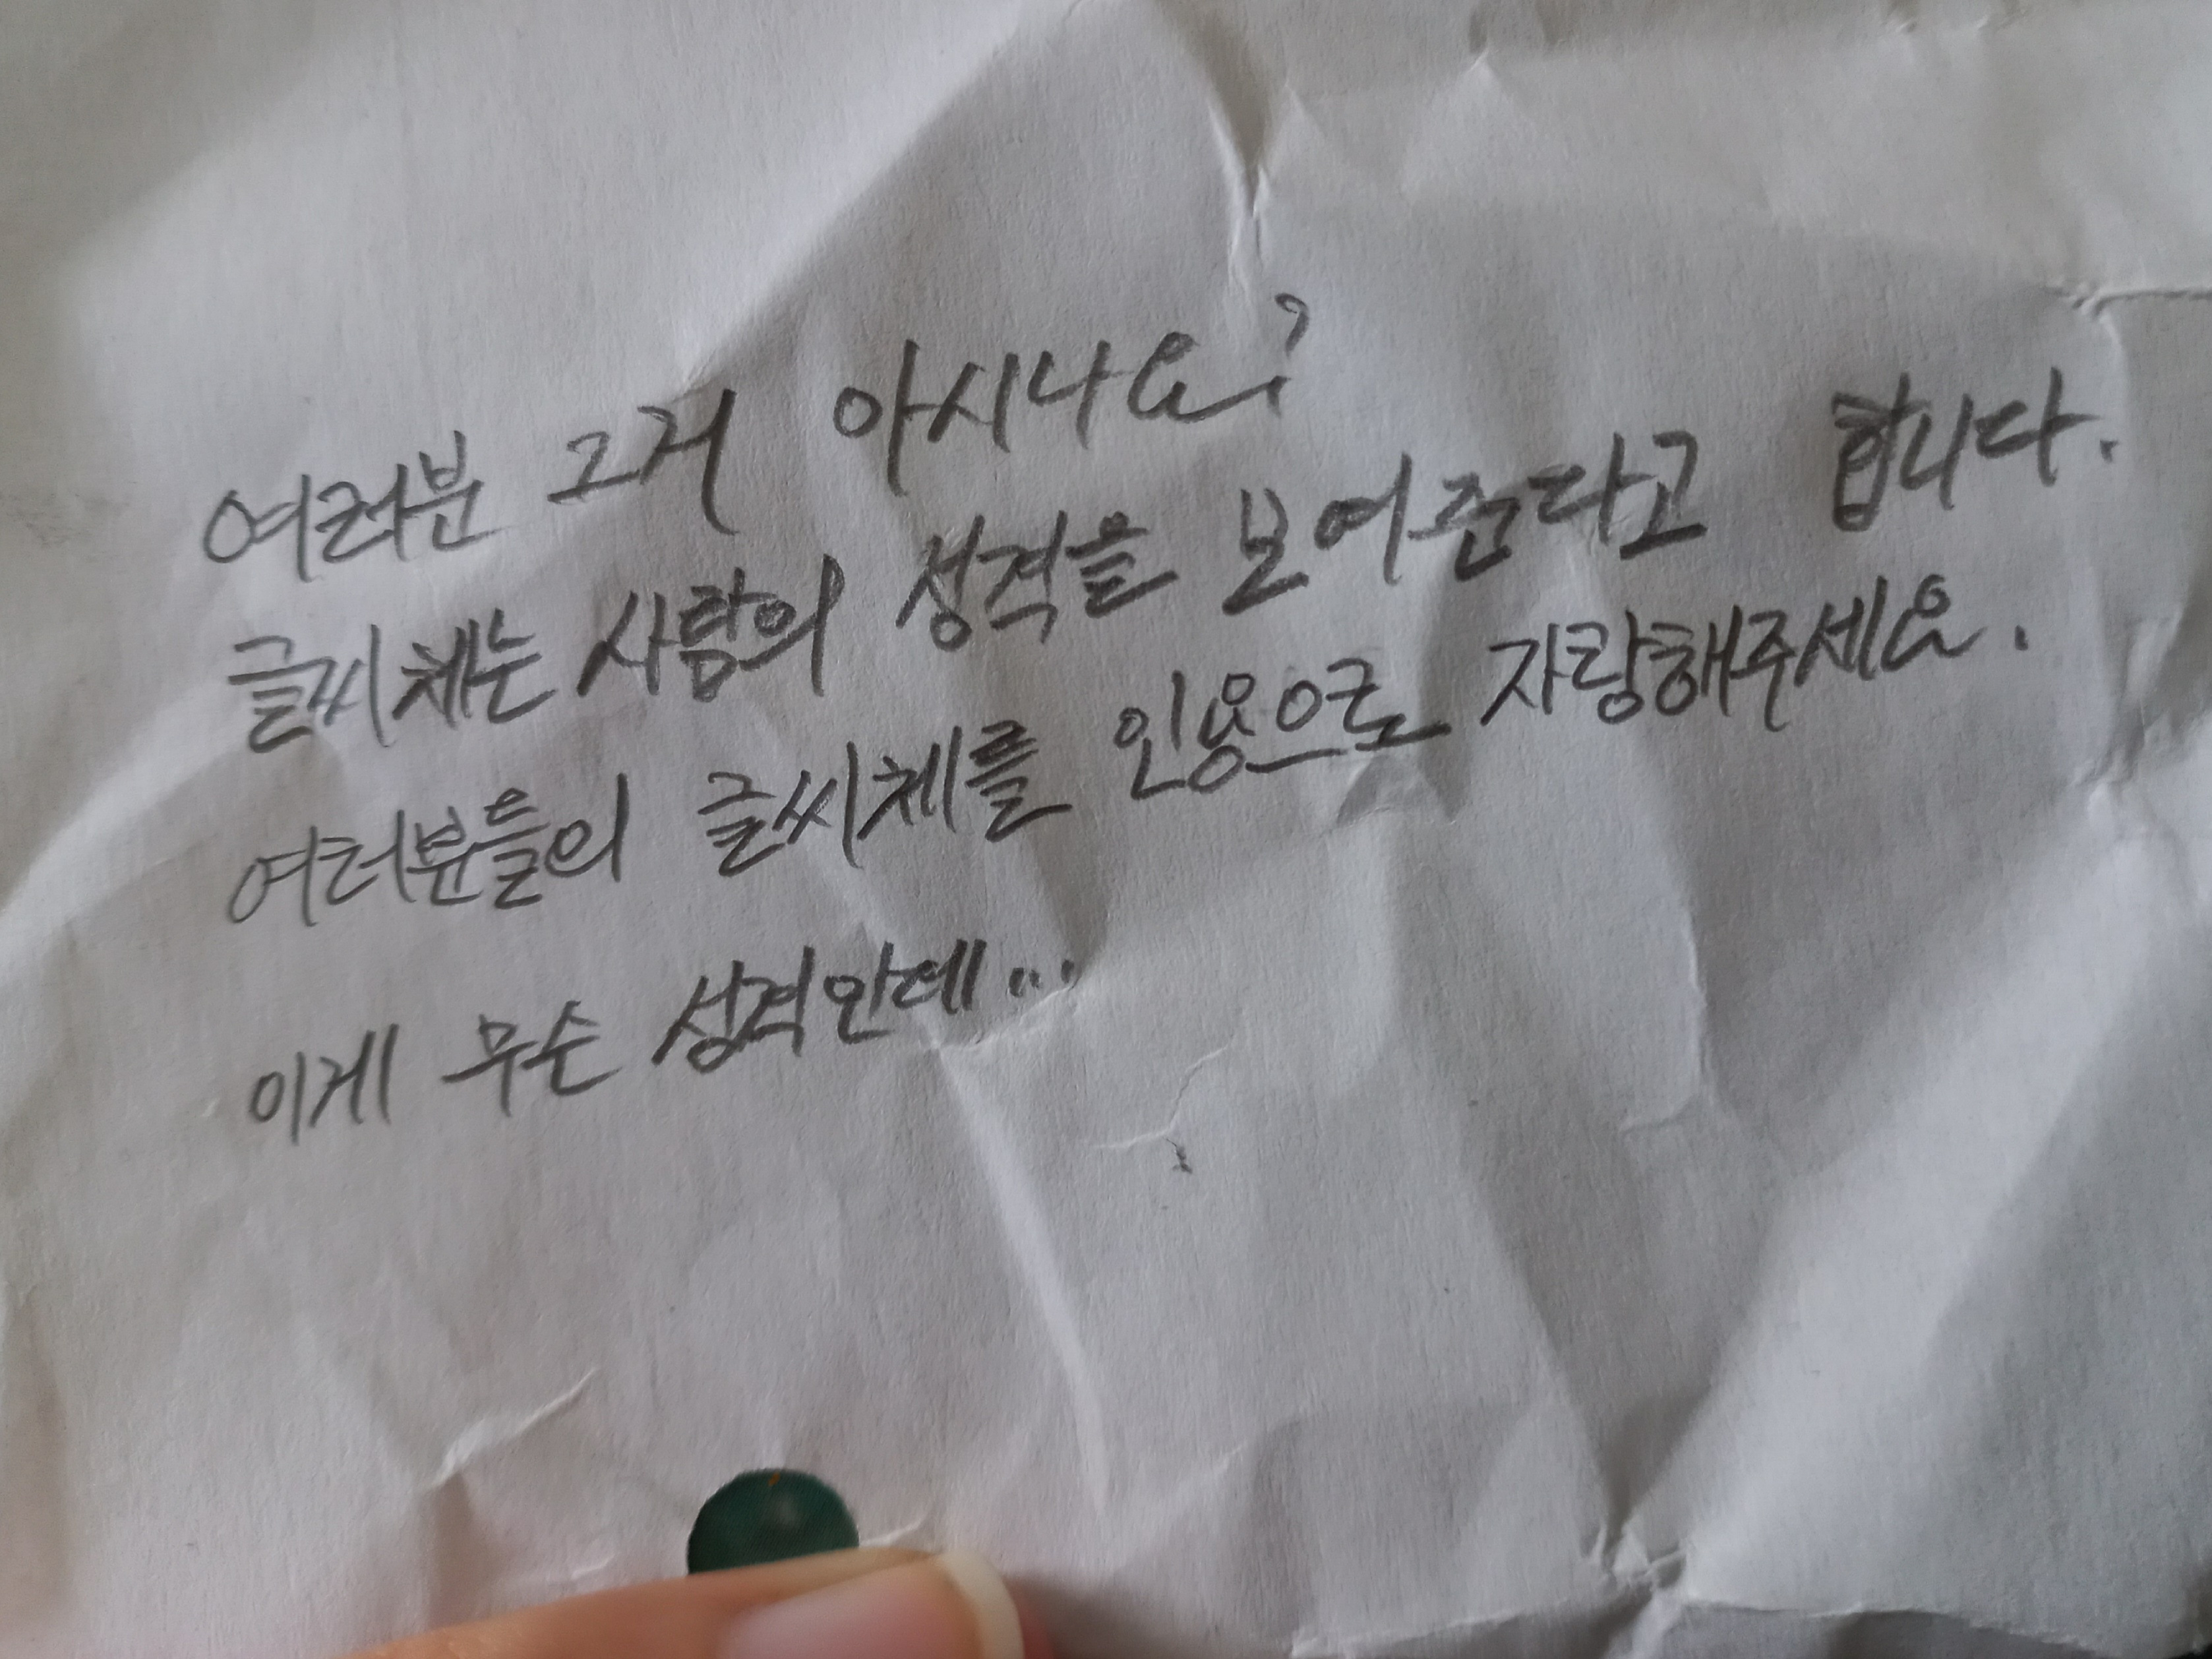 여러분 그거 아시나요?
글씨체는 사람의 성격을 보여준다고 합니다.
여러분들의 글씨체를 인용으로 자랑해주세요.
이게 무슨 성격인데...